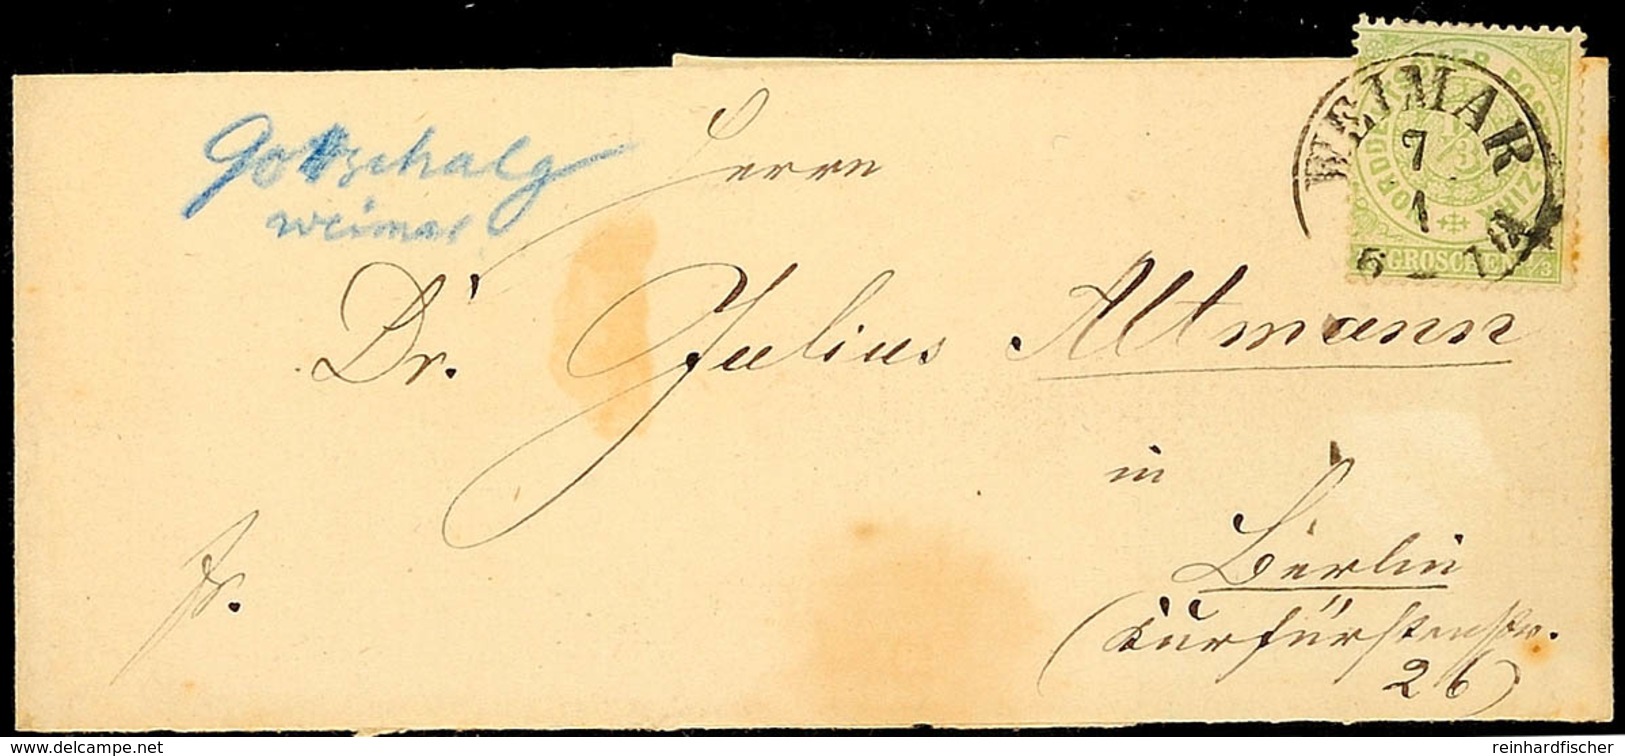 Gottschalg
Weimar
Herrn
Dr. Julius Altmann
in
Berlin
(Kurfürstenstr.
26)
fr.
WEIMAR
7
1
6 - 7
NORDDEUTSCHER POSTBEZIRK
1/3
GROSCHEN 1/3
www.delcampe.net
reinhardfischer